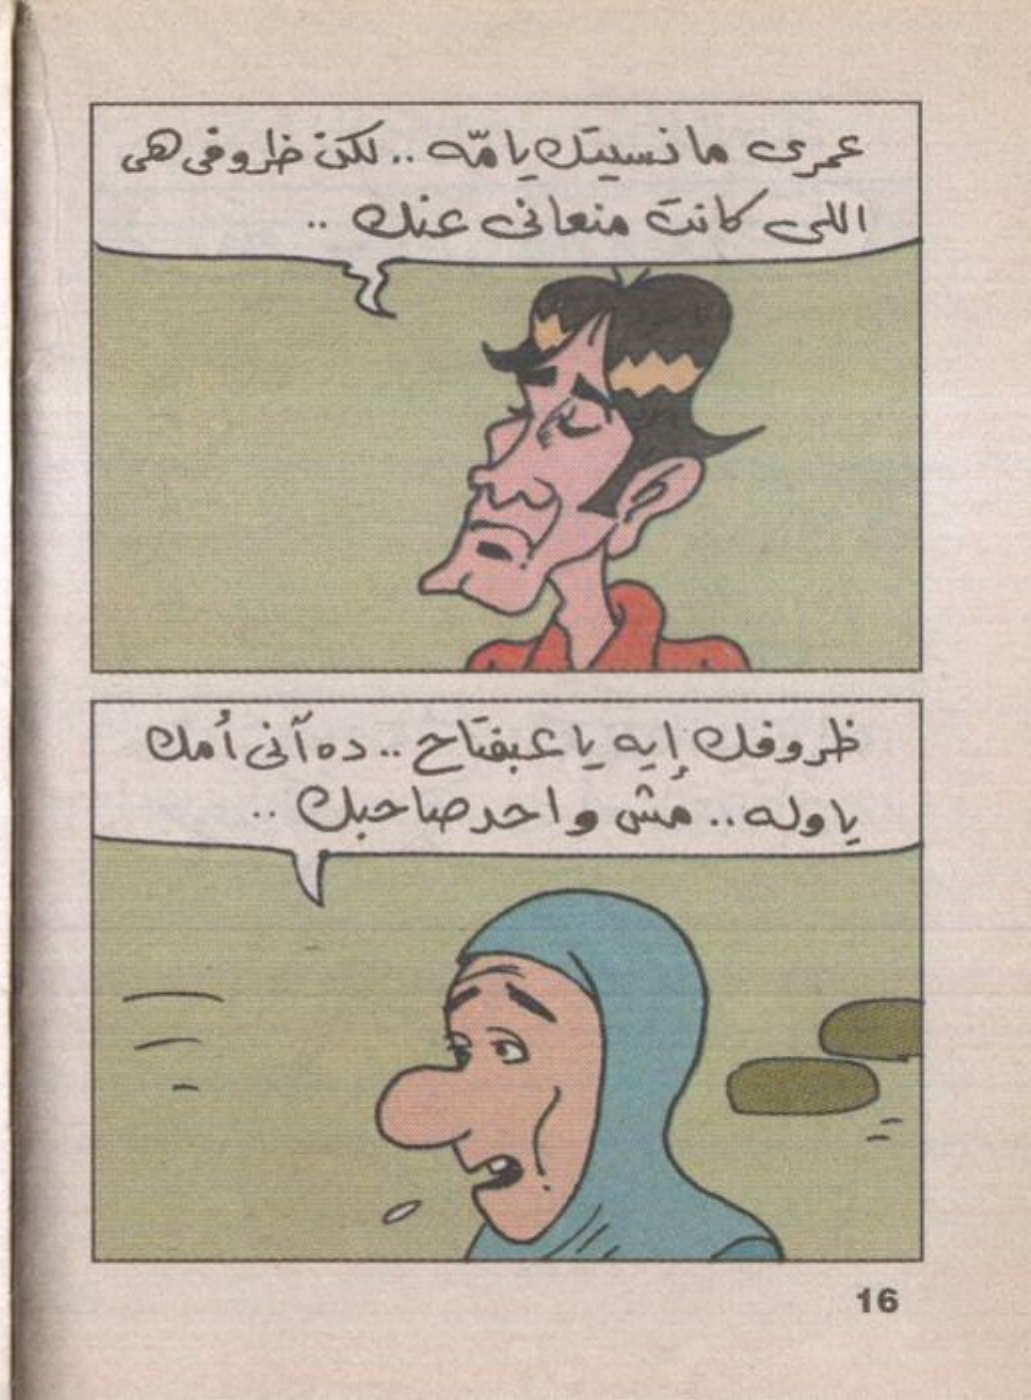 عمرى ما نسيتك يا مّه .. لكن ظروفى هى
اللى كانت منعانى عنك ..
ظروفك إيه يا عبفتاح .. ده آنى أمك
يا وله .. مُش واحد صاحبك ..
16